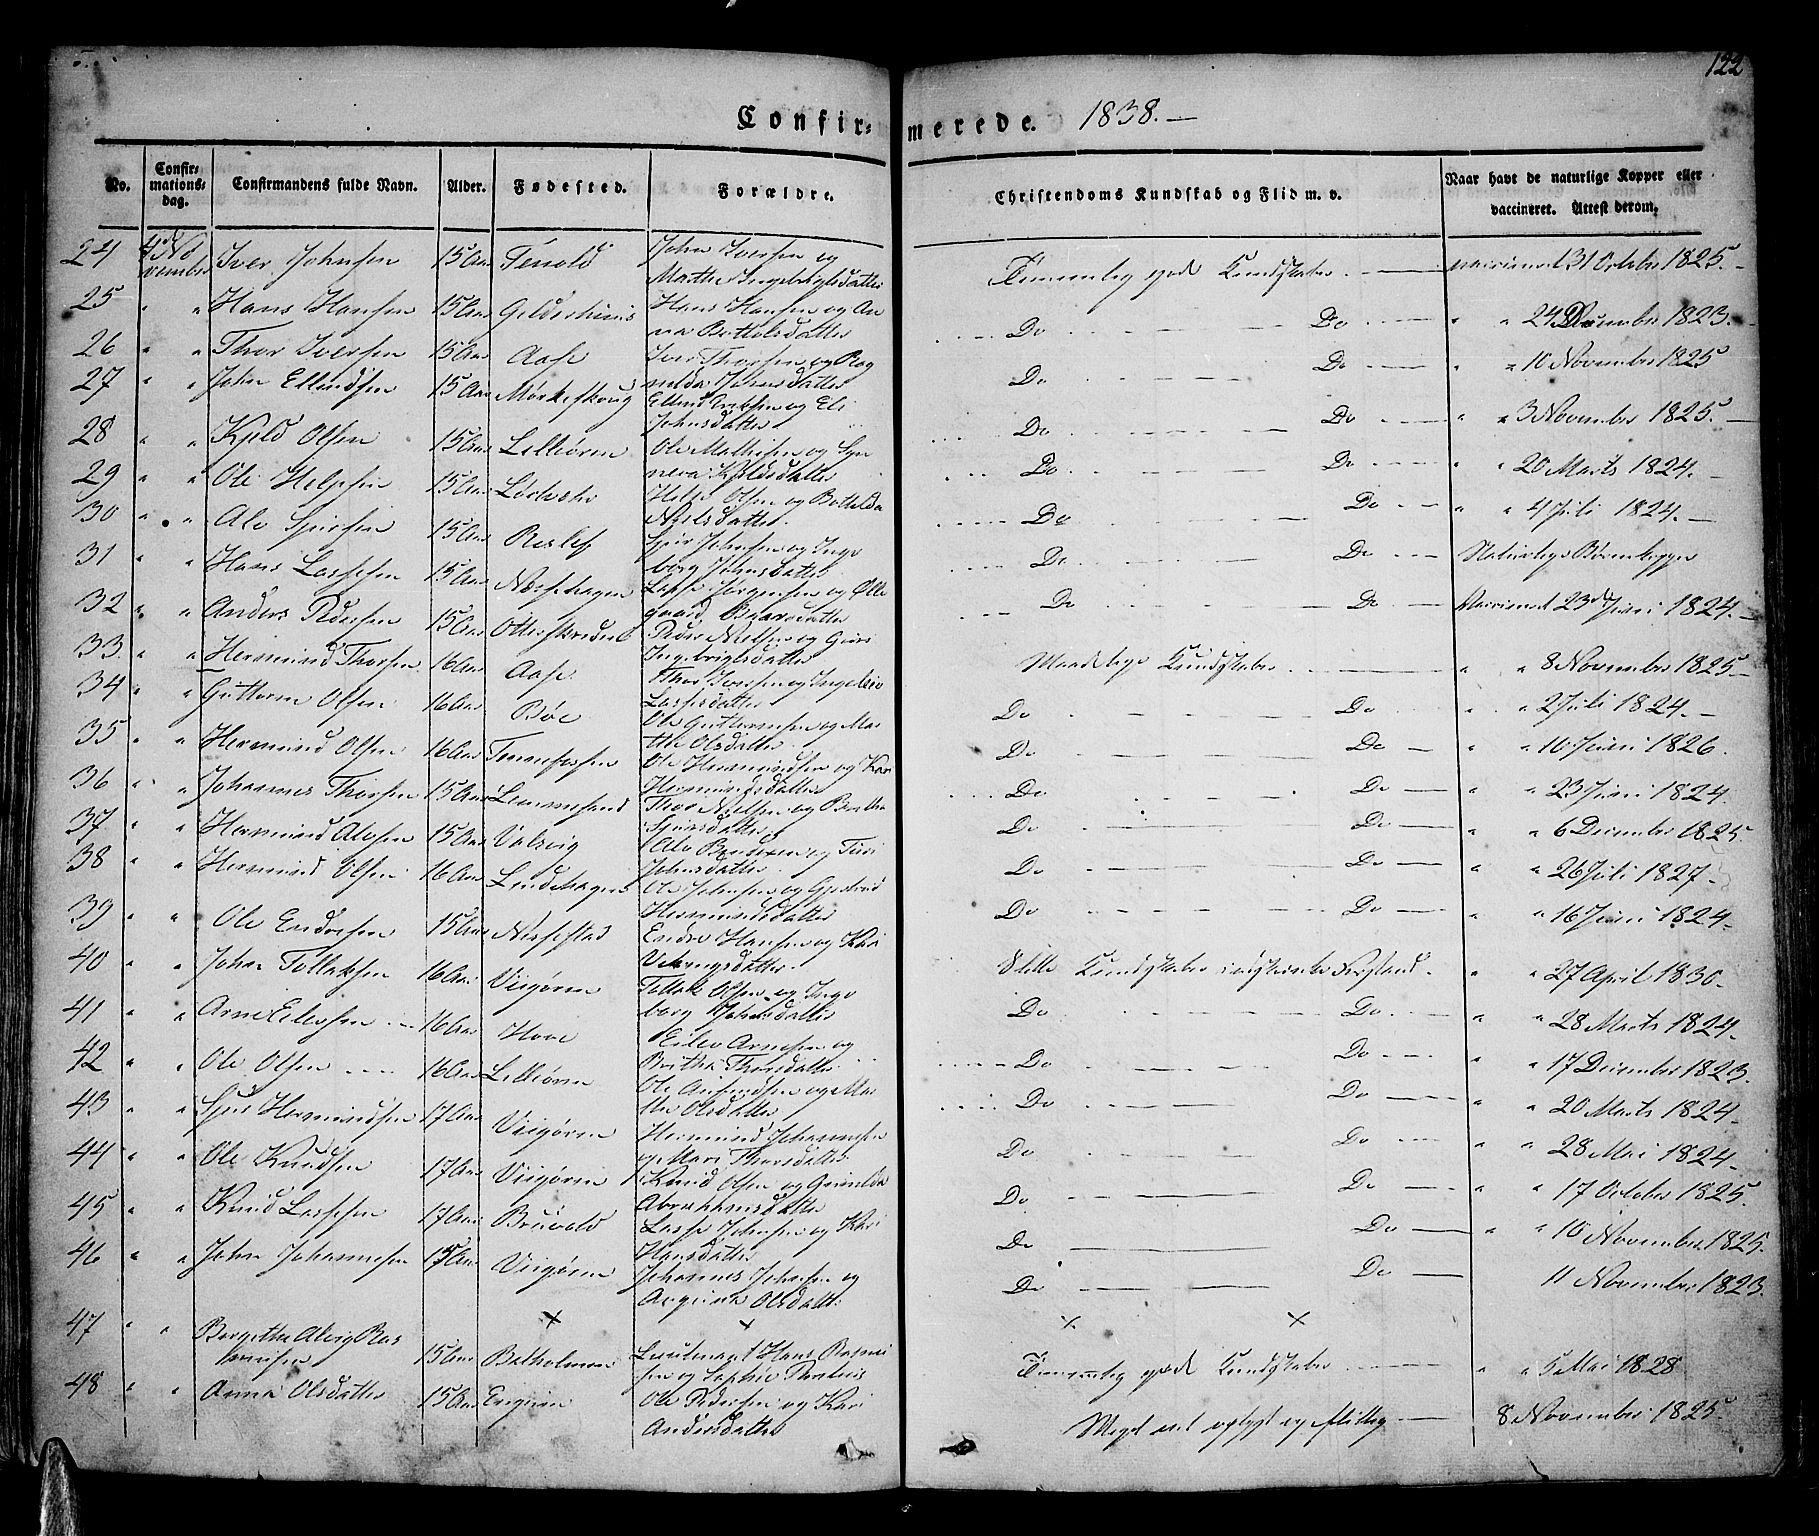 122
Confirmerede. 1838. —
No. Confirmationsdag. Confirmandens fulde Navn. Alder. Fødested. Forældre. Christendoms Kundskab og Flid m. v. Naar havt de naturlige Kopper eller vaccineret. Attest derom.
24 4de November Iver Johnsen 15 Aar Tenold John Iversen og Martha Ingebrigtsdatter Temmelig gode Kundskaber vaccineret 31 October 1825. —
25 " " Hans Hansen 15 Aar Hans Hansen og Anna Do Do " " 24 December 1823. —
26 " " Thor Iversen 15 Aar Aase Iver Thorsen og Ragnilda Johnsdatter Do Do " " 10 November 1825
27 " " John Ellendsen 15 Aar Mørkeskoug Ellend Eriksen og Eli Johnsdatter Do Do " " 3 November 1825. —
28 " " Kjeld Olsen 15 Aar Lilleøren Ole Mathisen og Synneva Kjeldsdatter Do Do " " 20 Marts 1824. —
29 " " Ole Helgesen 15 Aar Helge Olsen og Botholda Nielsdatter. Do Do " " 4 Juli 1824. —
30 " " Alv Sjursen 15 Aar Sjur Johnsen og Ingeborg Johnsdatter Do Do Naturlige Børnekopper
31 " " Hans Lassesen 15 Aar Nessehagen Lasse Jørgensen og Ollegaard Do Do Vaccineret 23de Juni 1824. —
32 " " Anders Pedersen 15 Aar Otterskreded Peder Nielsen og Guri Ingebrigtsdatter Maadelige Kundskaber " " 8 November 1825 —
33 " " Hermund Thorsen 16 Aar Aase Thor Iversen og Ingeleiv Lassesdatter Do Do " " 2 Juli 1824. —
34 " " Guttorm Olsen 16 Aar Bøe Ole Guttormsen og Martha Olsdatter. Do Do " " 10 Juni 1826.
35 " " Hermund Olsen 16 Aar Tønnefossen Ole Hermundsen og Kari Hermundsdatter Do Do " " 23 Juni 1824.
36 " " Johannes Thorsen 15 Aar Thor Nielsen og Brita Sjursdatter Do Do " " 6 December 1825.
37 " " Hermund Alvsen 15 Aar Valsvig Alv Bendixen og Turi Johnsdatter. Do Do " " 26 Juli 1827.
38 " " Hermund Olsen 16 Aar Lindehagen Ole Johnsen og Gjertrud Hermundsdatter Do Do " " 16 Juni 1824. —
39 " " Ole Endresen 15 Aar Nessestad Endre Hansen og Kari Slette Kundskaber Forstand. " " 27 April 1830. —
40 " " John Tollaksen 16 Aar Vigøren Tollak Olsen og Ingeborg Johnsdatter Do Do " " 28 Marts 1824. —
41 " " Arne Eilevsen 16 Aar Hove Eilev Arnesen og Britha Thorsdatter Do Do " " 17 December 1823.
42 " " Ole Olsen 16 Aar Lilleøren Ole Amundsen og Martha Olsdatter Do Do " " 20 Marts 1824. —
43 " " Sjur Hermundsen 17 Aar Vigøren Hermund Johannesen og Mari Thorsdatter. Do Do " " 28 Mai 1824. —
44 " " Ole Knudsen 17 Aar Vigøren Knud Olsen og Gunilda Abrahamsdatter Do Do " " 17 October 1825.
45 " " Knud Lassesen 17 Aar Bruvold Lasse Johnsen og Kari Hansdatter Do Do " " 10 November 1825.
46 " " John Johannesen 15 Aar Vigøren Johannes Johnsen og Olsdatt: Do Do 11 November 1823.
× × × ×
47 " " Bergitta Alvig Rasmusen 15 Aar Betholmen Lieutenant Hans Rasmusen og Sophie Temmelig gode Kundskaber " " 5 Mai 1828
48 " " Anna Olsdatter 15 Aar Ole Pedersen og Kari Andersdatter Meget vel oplyst og flittig — 8 November 1825.